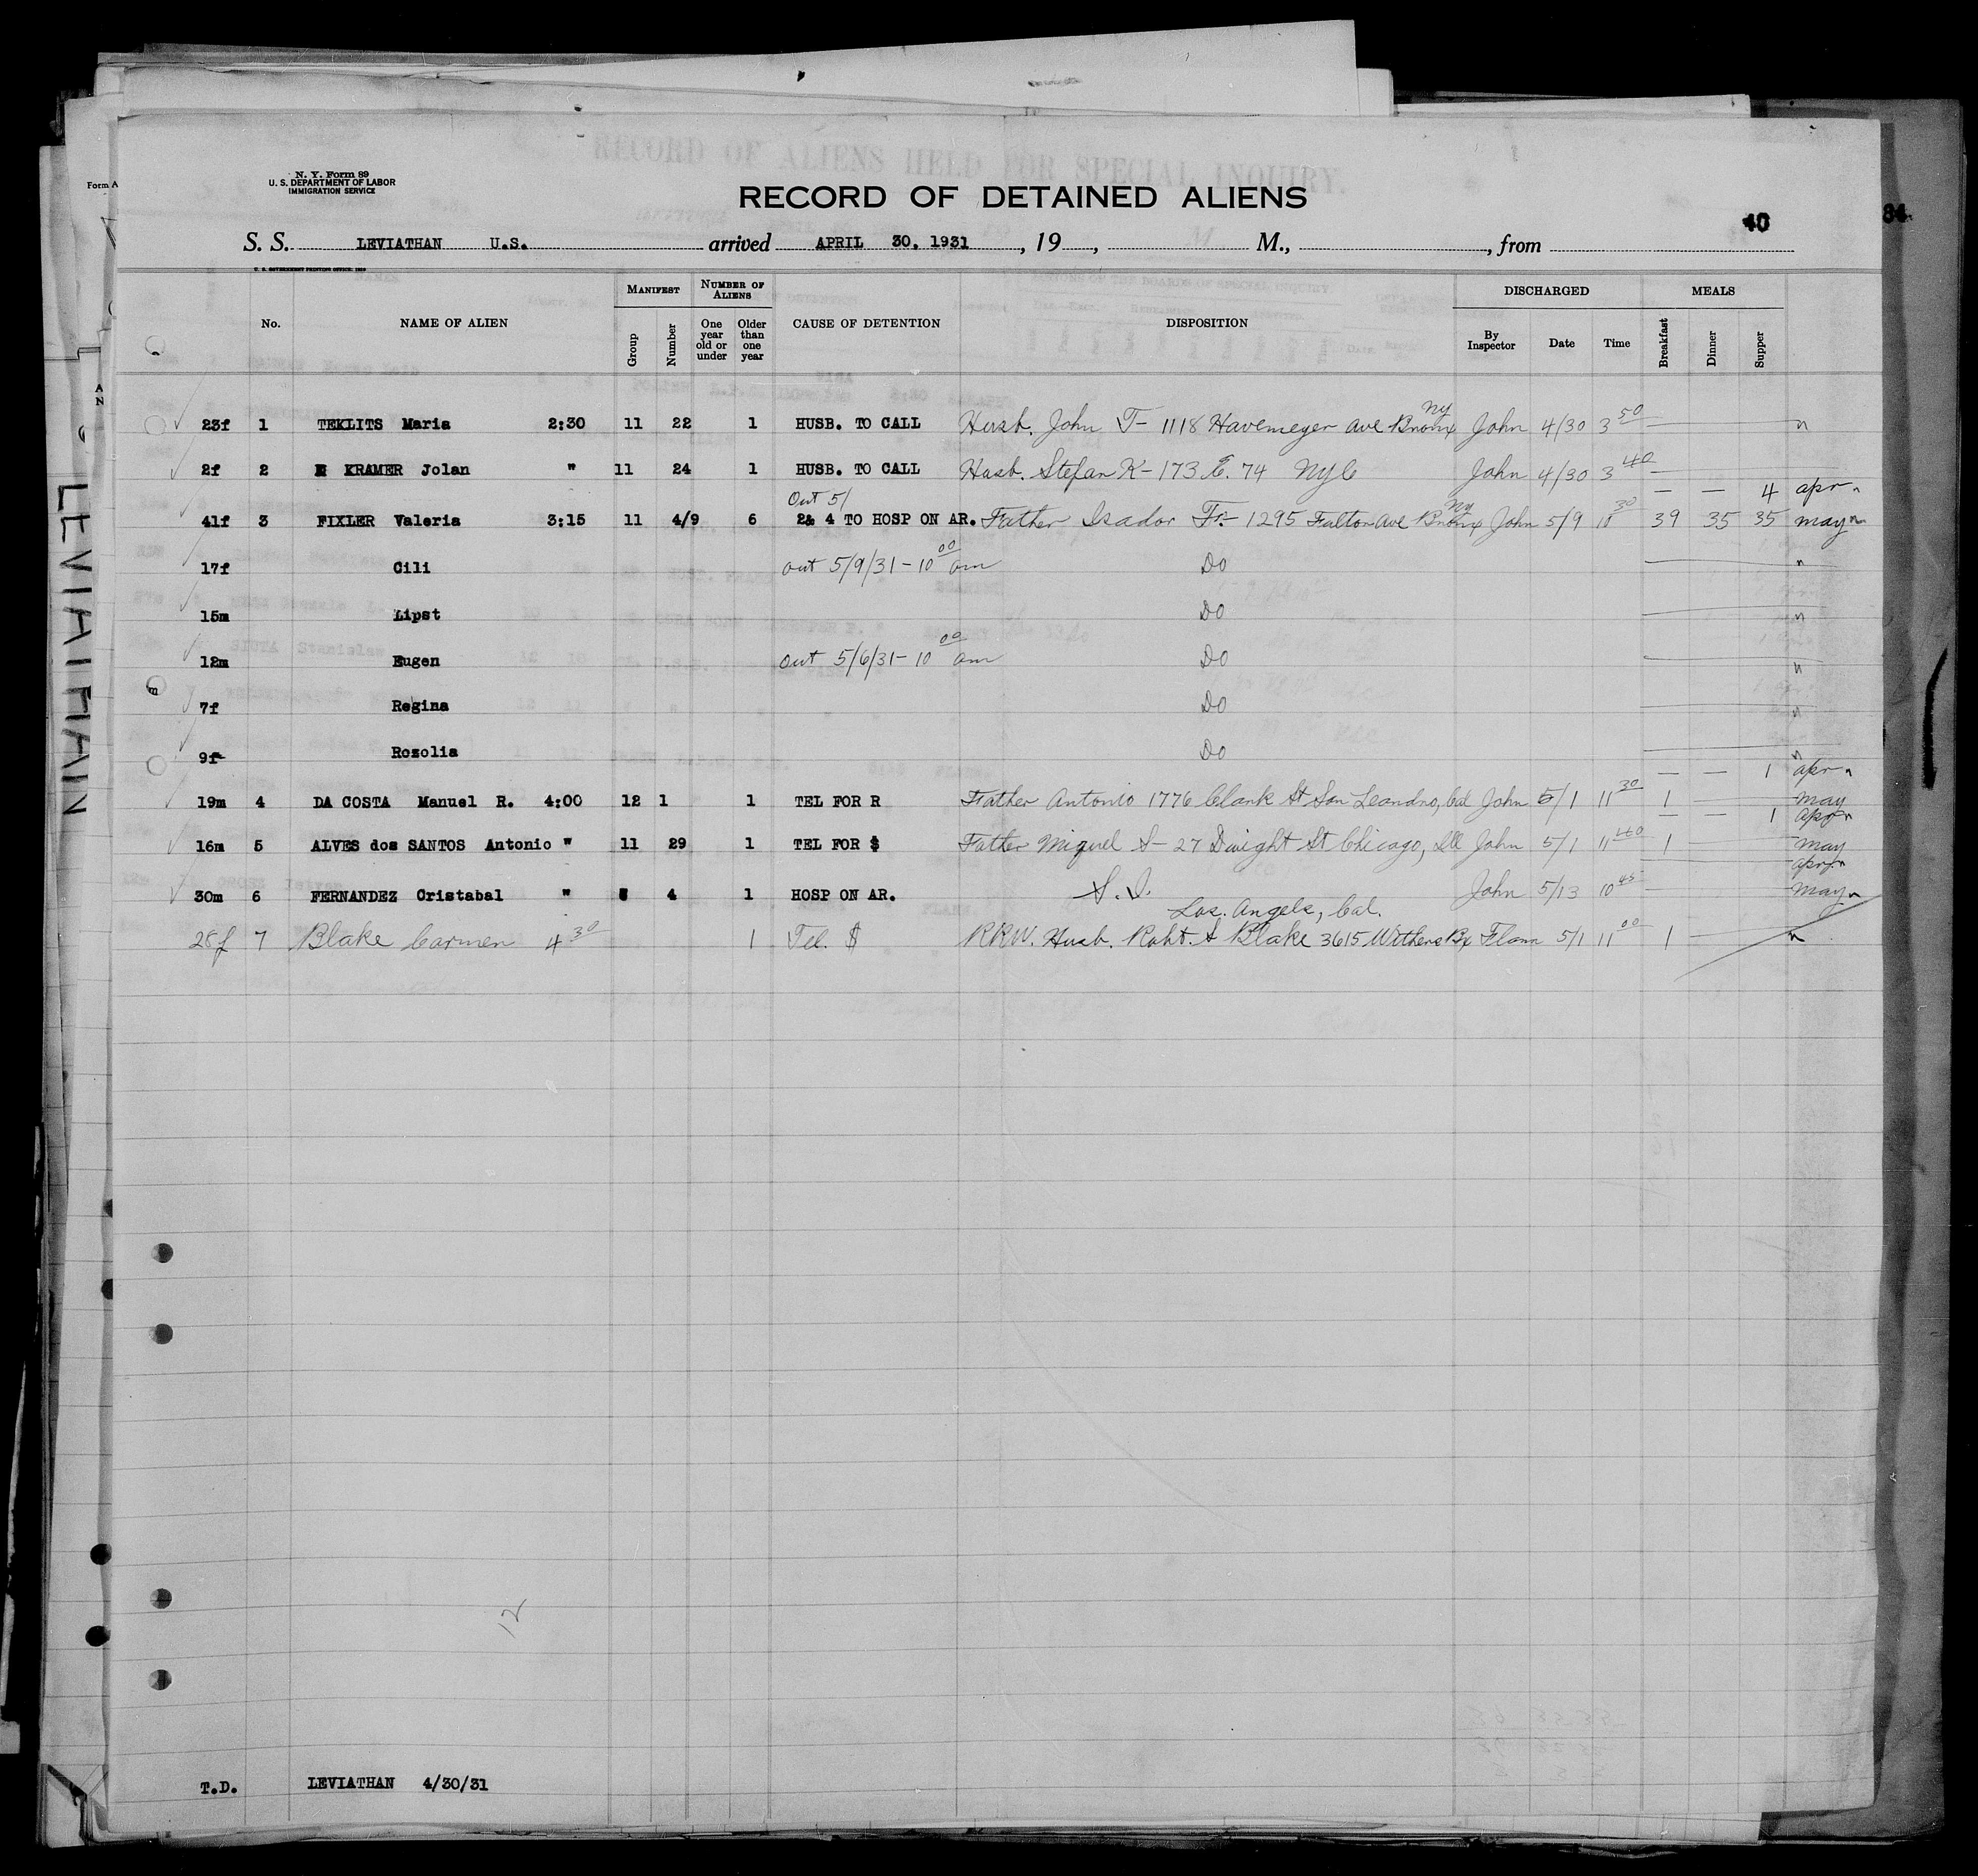 N. Y. Form 89
U. S. DEPARTMENT OF LABOR
IMMIGRATION SERVICE
RECORD OF ALIENS HELD FOR SPECIAL INQUIRY.
RECORD OF DETAINED ALIENS
40
84
Form A
S. S. LEVIATHAN U.S. arrived APRIL 30, 1931, 19, M., , from
U. S. GOVERNMENT PRINTING OFFICE: 1929
No. NAME OF ALIEN MANIFEST Group Number NUMBER OF ALIENS One year old or under Older than one year CAUSE OF DETENTION DISPOSITION DISCHARGED By Inspector Date Time MEALS Breakfast Dinner Supper
23f 1 TEKLITS Maria 2:30 11 22 1 HUSB. TO CALL Husb. John T- 1118 Havemeyer Ave Bronx NY John 4/30 3 50 — "
2f 2 KRAMER Jolan " 11 24 1 HUSB. TO CALL Husb. Stefan K- 173 E. 74 NYC John 4/30 3 40 —
Out 5/ — — 4 apr "
41f 3 FIXLER Valeria 3:15 11 4/9 6 2& 4 TO HOSP ON AR. Father Isador Fr- 1295 Fulton Ave Bronx NY John 5/9 10 30 39 35 35 may "
17f Cili out 5/9/31 - 10 00 am Do "
15m Lipst Do "
12m Eugen out 5/6/31 - 10 00 am Do "
7f Regina Do "
9f Rozolia Do "
— — 1 apr "
19m 4 DA COSTA Manuel R. 4:00 12 1 1 TEL FOR R Father Antonio 1776 Clark St San Leandro, Cal John 5/1 11 30 1 — May
— — 1 apr "
16m 5 ALVES dos SANTOS Antonio " 11 29 1 TEL FOR $ Father Miguel S- 27 Dwight St Chicago, Ill John 5/1 11 40 1 — May
apr "
30m 6 FERNANDEZ Cristabal " 4 1 HOSP ON AR. S. I. John 5/13 10 45 — May "
Los. Angels, Cal.
28f 7 Blake Carmen 4 30 1 Tel. $ RRW. Husb. Robt. S Blake 3615 Withers Flann 5/1 11 00 1 — "
LEVIATHAN
12
T.D. LEVIATHAN 4/30/31